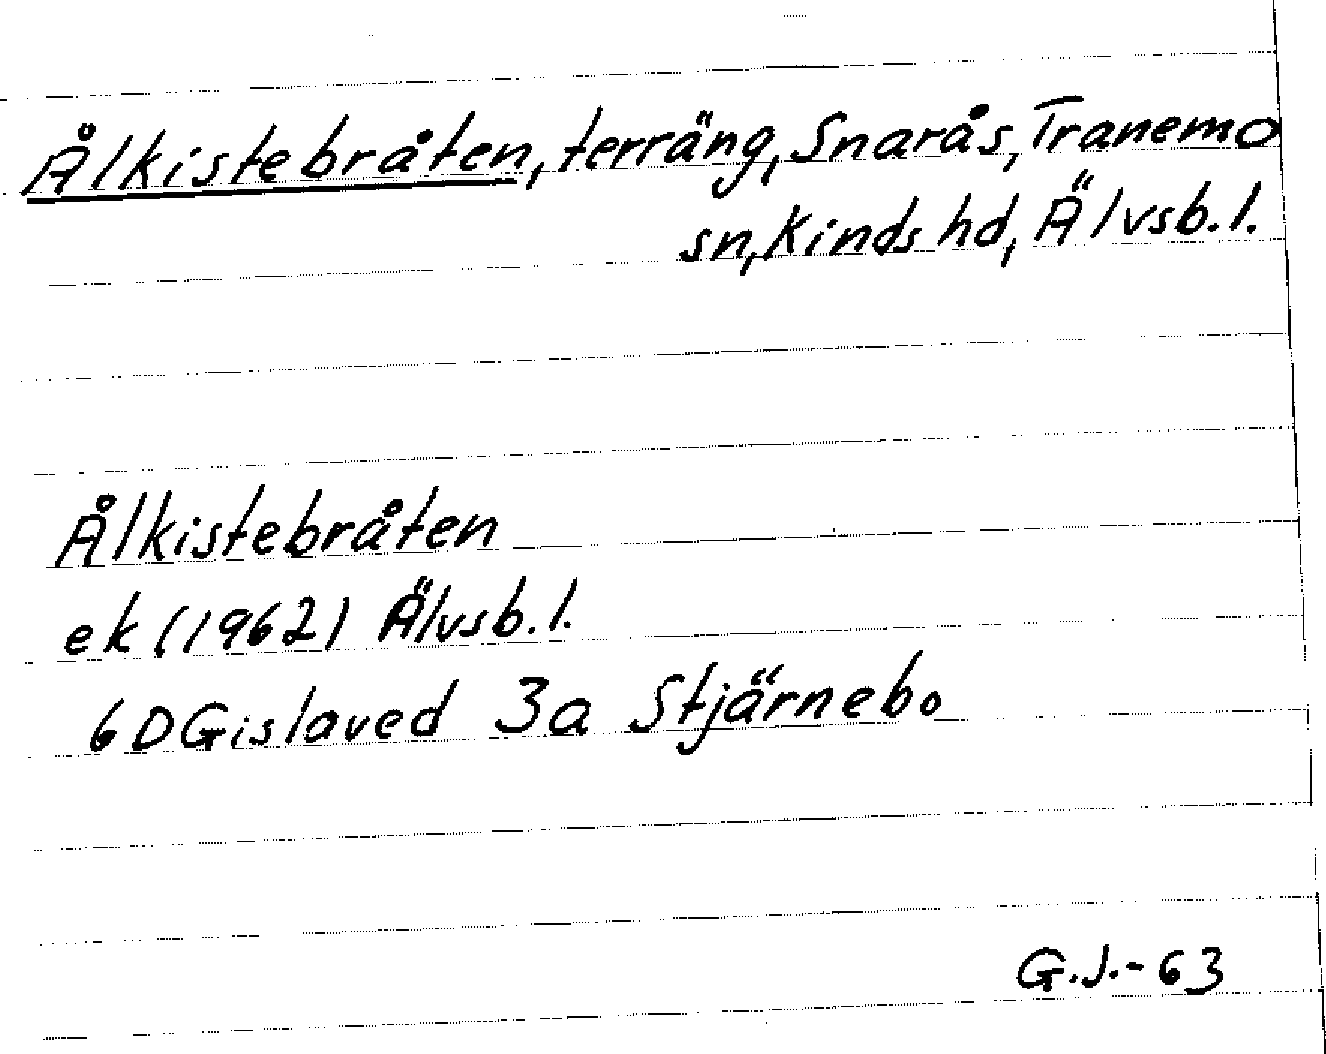 Ålkistebråten, terräng, Snarås, Tranemo
sn, Kinds hd, Älvsb. l.
Ålkistebråten
ek (1962) Älvsb. l.
6D Gislaved 3a Stjärnebo
G.J.-63